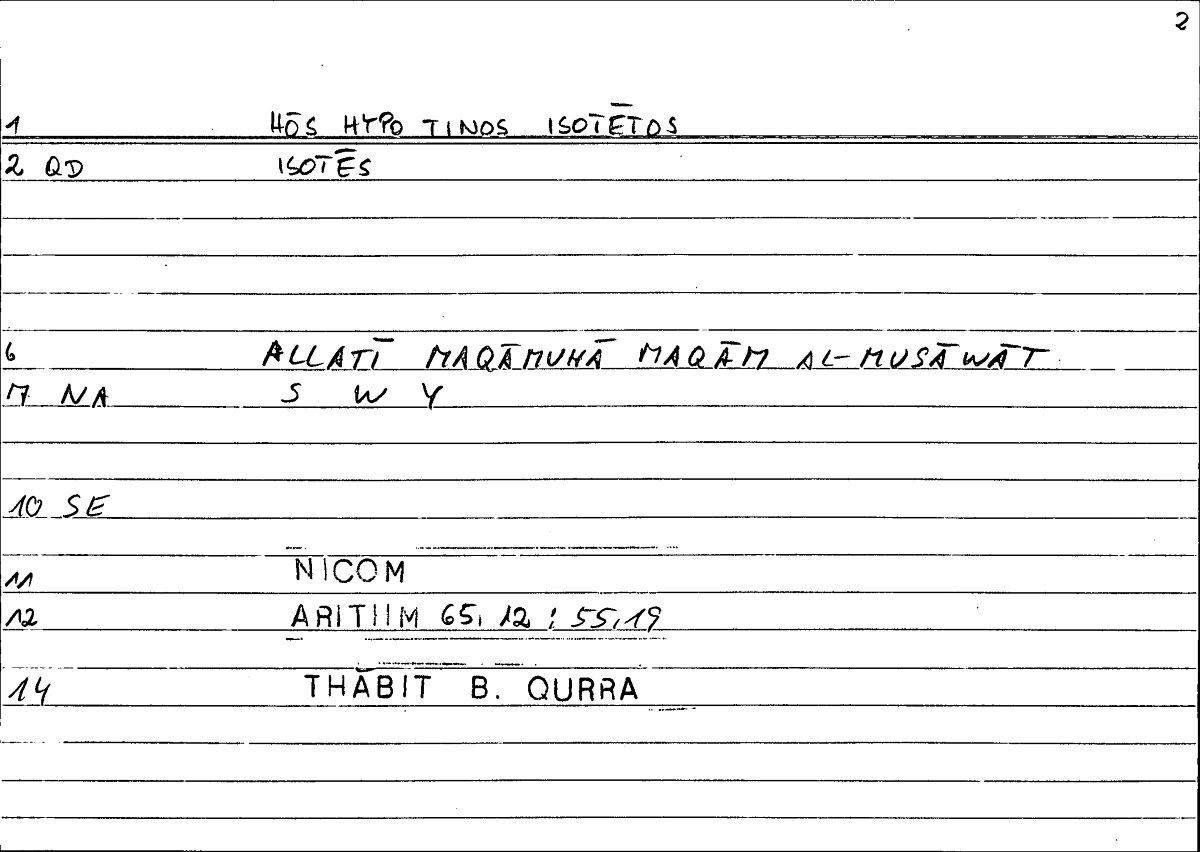 2
1 HŌS HYPO TINOS ISOTĒTOS
2 QD ISOTĒS
6 ALLATĪ MAQĀMUHĀ MAQĀM AL-MUSĀWĀT
7 NA S W Y
10 SE
11 NICOM
12 ARITIIM 65, 12 : 55,19
14 THĀBIT B. QURRA